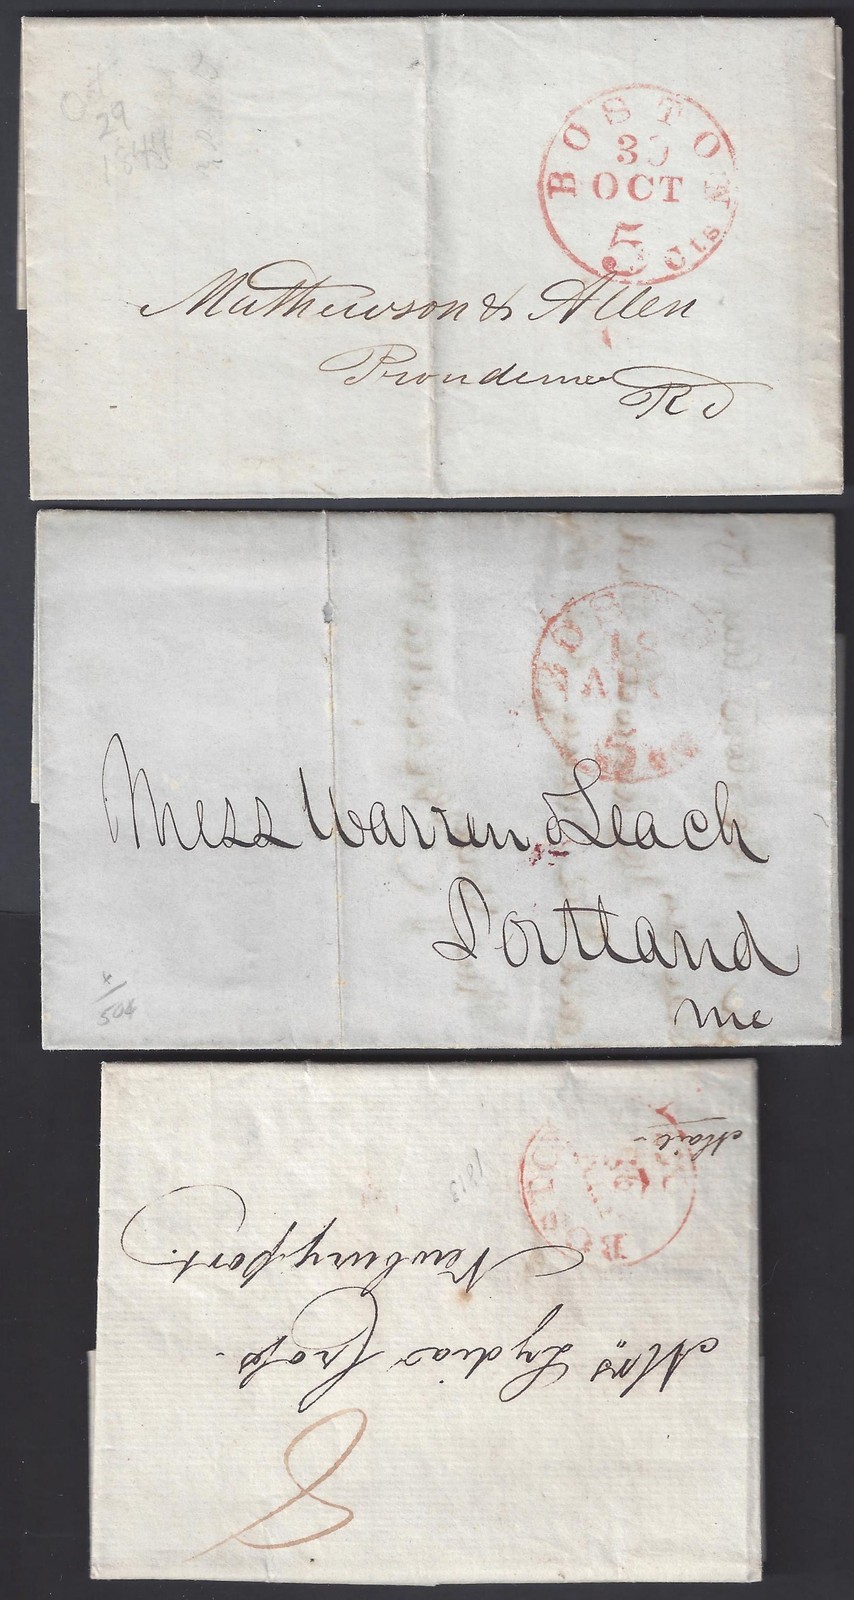 Oct
29
BOSTON
30
OCT
5 Cts
Mathewson & Allen
Providence
RI
BOS
5
Mess Warren & Leach
Portland
Me
4/504
BOSTO
Mail
1813
Mrs, Lydia Cross.
Newburyport.
8